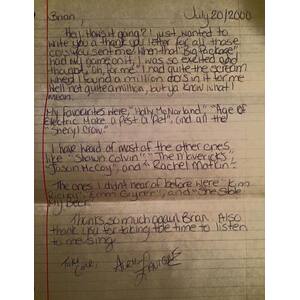 Brian, July 20/2000
Hey, How's it going? I just wanted to
write you a thank you letter for all those
cds you sent me! When that "Big Package"
had my name on it, I was so excited and
thought, "Oh, for me". I had quite the scream
when I found a million cds in it for me
Well not quite a million, but ya know what I
mean.
My favourites were, "Holly McNarland," "Age of
Electric Make a Pest a Pet", and all the
"Sheryl Crow."
I have heard of most of the other ones,
like "Shawn Colvin", "The Mavericks"
"Jason McCoy", and "Rachel Matkin".
The ones I didn't hear of before were "Kim
and "She Stole
My Beer".
Thanks so much again Brian. Also
thank you for taking the time to listen
to me sing.
Take Care,